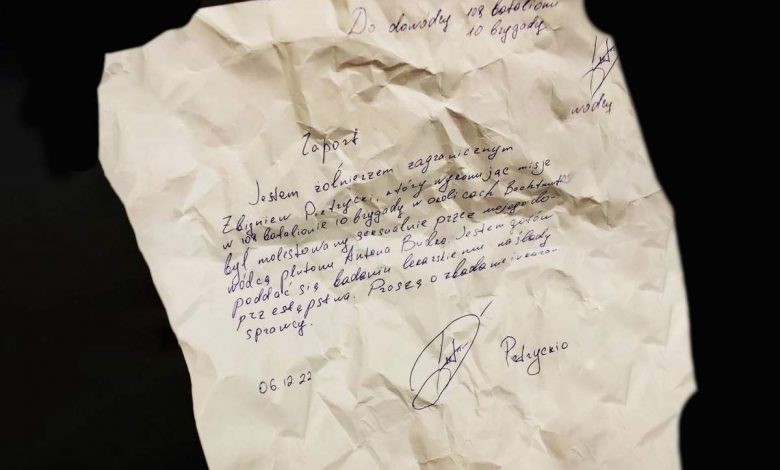 Do dowódcy 109 batalionu
10 brygady
wódcy
Raport
Jestem żołnierzem zagranicznym
Zbigniew Pietrycki, który wykonując misję
w 109 batalionie 10 brygady w okolicach
był molestowany seksualnie przez mojego do-
wódcą plutonu Antona Budko. Jestem gotów
poddać się badaniu lekarskiemu na ślady
przestępstwa. Proszą o zbadanie i
sprawcy.
06.12.22
Petryckio